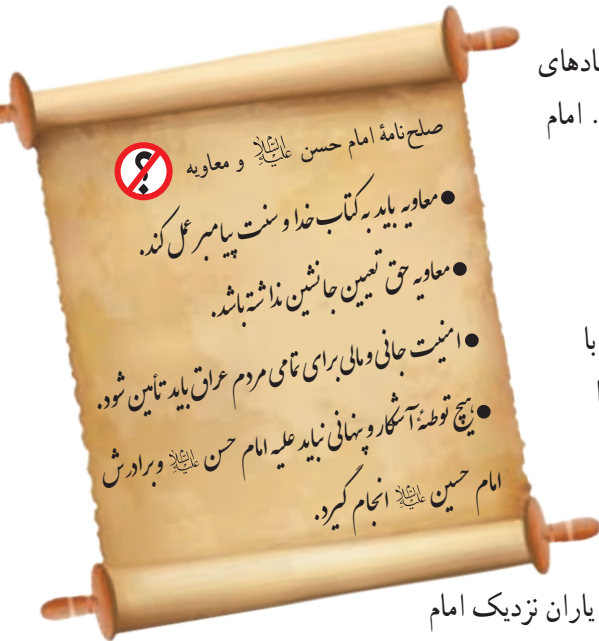 ادهای
. امام
صلح‌نامهٔ امام حسن علیه‌السلام و معاویه
؟
• معاویه باید به کتاب خدا و سنت پیامبر عمل کند.
• معاویه حق تعیین جانشین نداشته باشد.
با
• امنیت جانی و مالی برای تمامی مردم عراق باید تأمین شود.
• هیچ توطئهٔ آشکار و پنهانی نباید علیه امام حسن علیه‌السلام و برادرش
امام حسین علیه‌السلام انجام گیرد.
یاران نزدیک امام